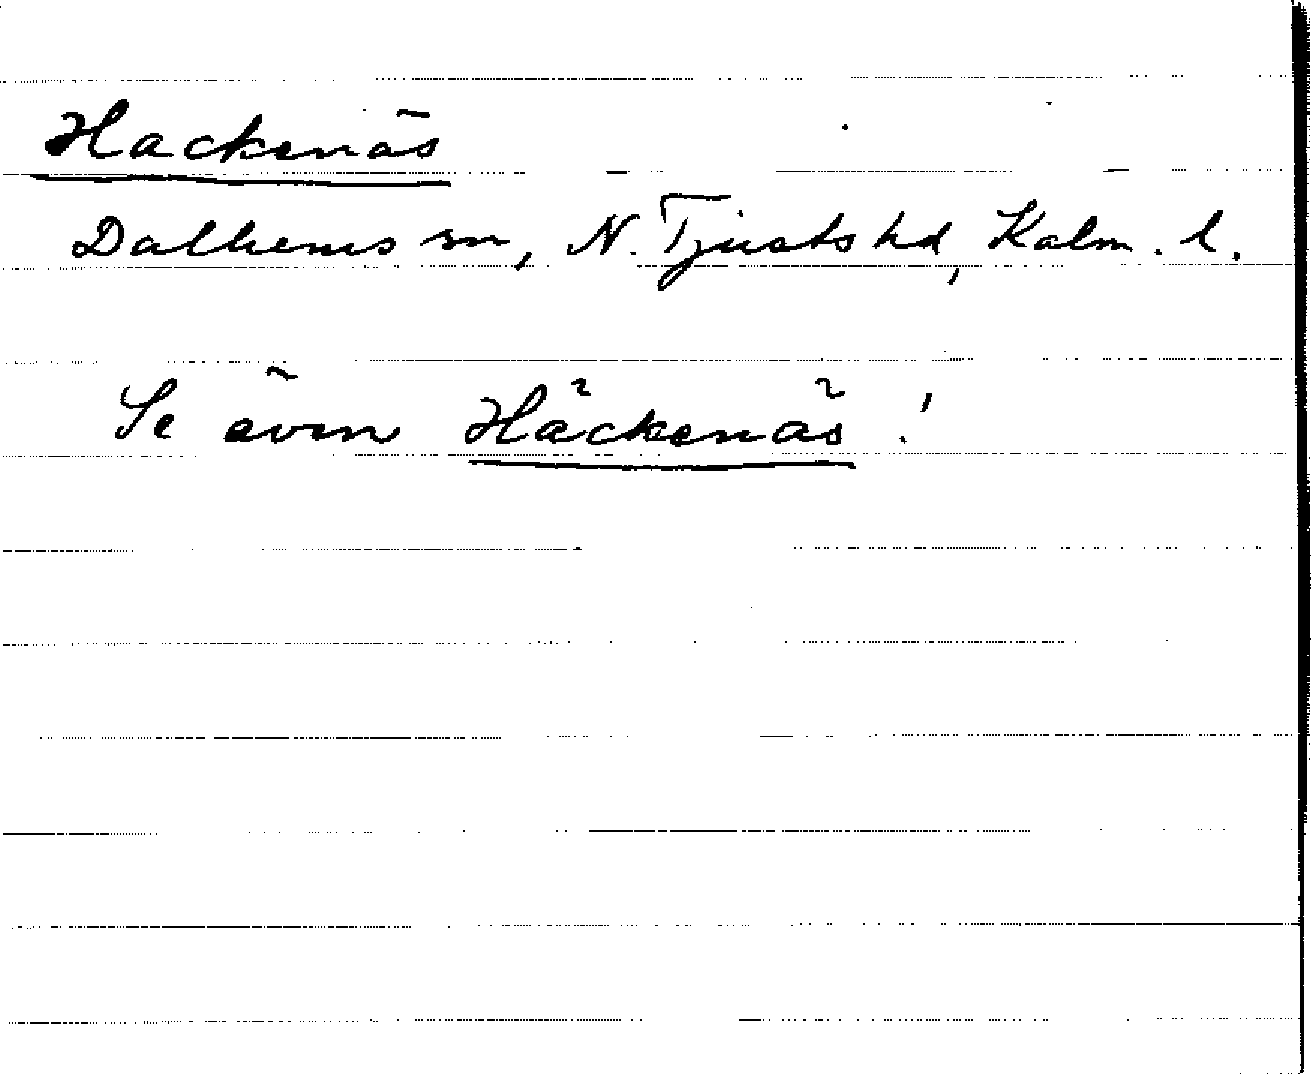 Hackenäs
Dalhems sn, N. Tjusts hd, Kalm. l.
Se även Häckenäs!